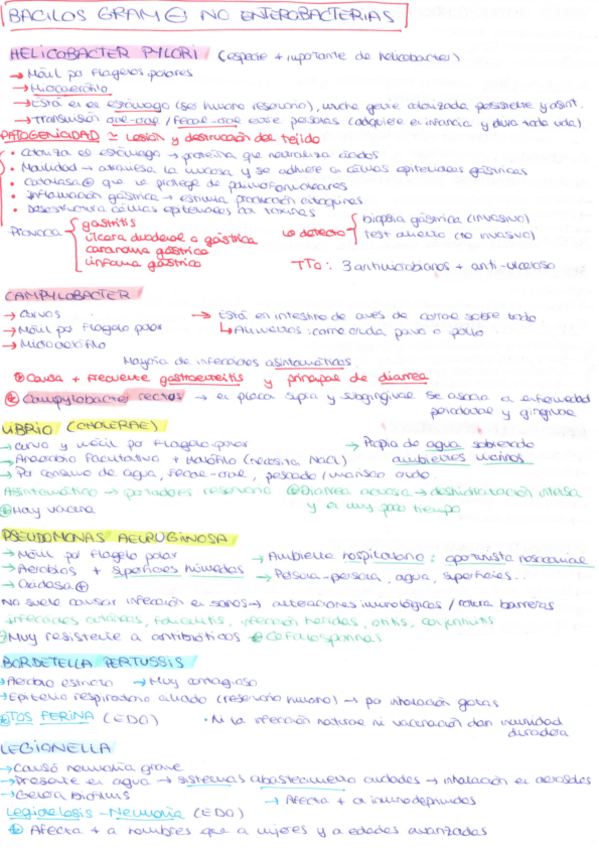 BACILOS GRAM ⊖ NO ENTEROBACTERIAS
HELICOBACTER PYLORI (especie + importante de helicobacter)
→ Móvil por flagelos polares
→ Microaerófilo
→ Está en el estómago (ser humano reservorio), mucha gente colonizada, persistente y asint.
→ Transmisión oral-oral / fecal-oral entre personas (adquiere en infancia y dura toda vida)
PATOGENICIDAD ≃ Lesión y destrucción del tejido
• Coloniza el estómago → proteína que neutraliza ácidos
• Movilidad → atraviesa la mucosa y se adhiere a células epiteliales gástricas
• Catalasa ⊕ que le protege de polimorfonucleares
• Inflamación gástrica → estimula producción citoquinas
• Desestructura células epiteliales por toxinas
Provoca
gastritis
úlcera duodenal o gástrica
carcinoma gástrico
linfoma gástrico
se detecta
biopsia gástrica (invasivo)
test aliento (no invasivo)
TTO: 3 antimicrobianos + anti-ulceroso
CAMPYLOBACTER
→ Curvos
→ Móvil por flagelo polar
→ Microaerófilo
→ Está en intestino de aves de corral sobre todo
↳ Alimentos: carne cruda, pavo o pollo
Mayoría de infecciones asintomáticas
Causa + frecuente gastroenteritis y principal de diarrea
Campylobacter rectus → en placa supra y subgingival se asocia a enfermedad periodontal y gingival
VIBRIO (CHOLERAE)
→ Curvo y móvil por flagelo polar
→ Anaerobio facultativo + Halófilo (necesita NaCl)
→ Por consumo de agua, fecal-oral, pescado / marisco crudo
→ Propia de agua sobretodo ambientes marinos
Asintomático → portadores reservorio
Diarrea acuosa → deshidratación intensa y en muy poco tiempo
Hay vacuna
PSEUDOMONAS AERUGINOSA
→ Móvil por flagelo polar
→ Aerobios + superficies húmedas
→ Oxidasa ⊕
→ Ambiente hospitalario: oportunista nosocomial
→ Persona-persona, agua, superficies...
No suele causar infección en sanos → alteraciones inmunológicas / rotura barreras
Infecciones cutáneas, foliculitis, infección heridas, otitis, conjuntivitis
Muy resistente a antibióticos
Cefalosporinas
BORDETELLA PERTUSSIS
→ Aerobio estricto → Muy contagioso
→ Epitelio respiratorio ciliado (reservorio humano) → por inhalación gotas
TOS FERINA (EDO)
• Ni la infección natural ni vacunación dan inmunidad duradera
LEGIONELLA
→ Causó neumonía grave
→ Presente en agua → sistemas abastecimiento ciudades → inhalación en aerosoles
→ Genera biofilms
→ Afecta + a inmunodeprimidos
Legionelosis - Neumonía (EDO)
Afecta + a hombres que a mujeres y a edades avanzadas